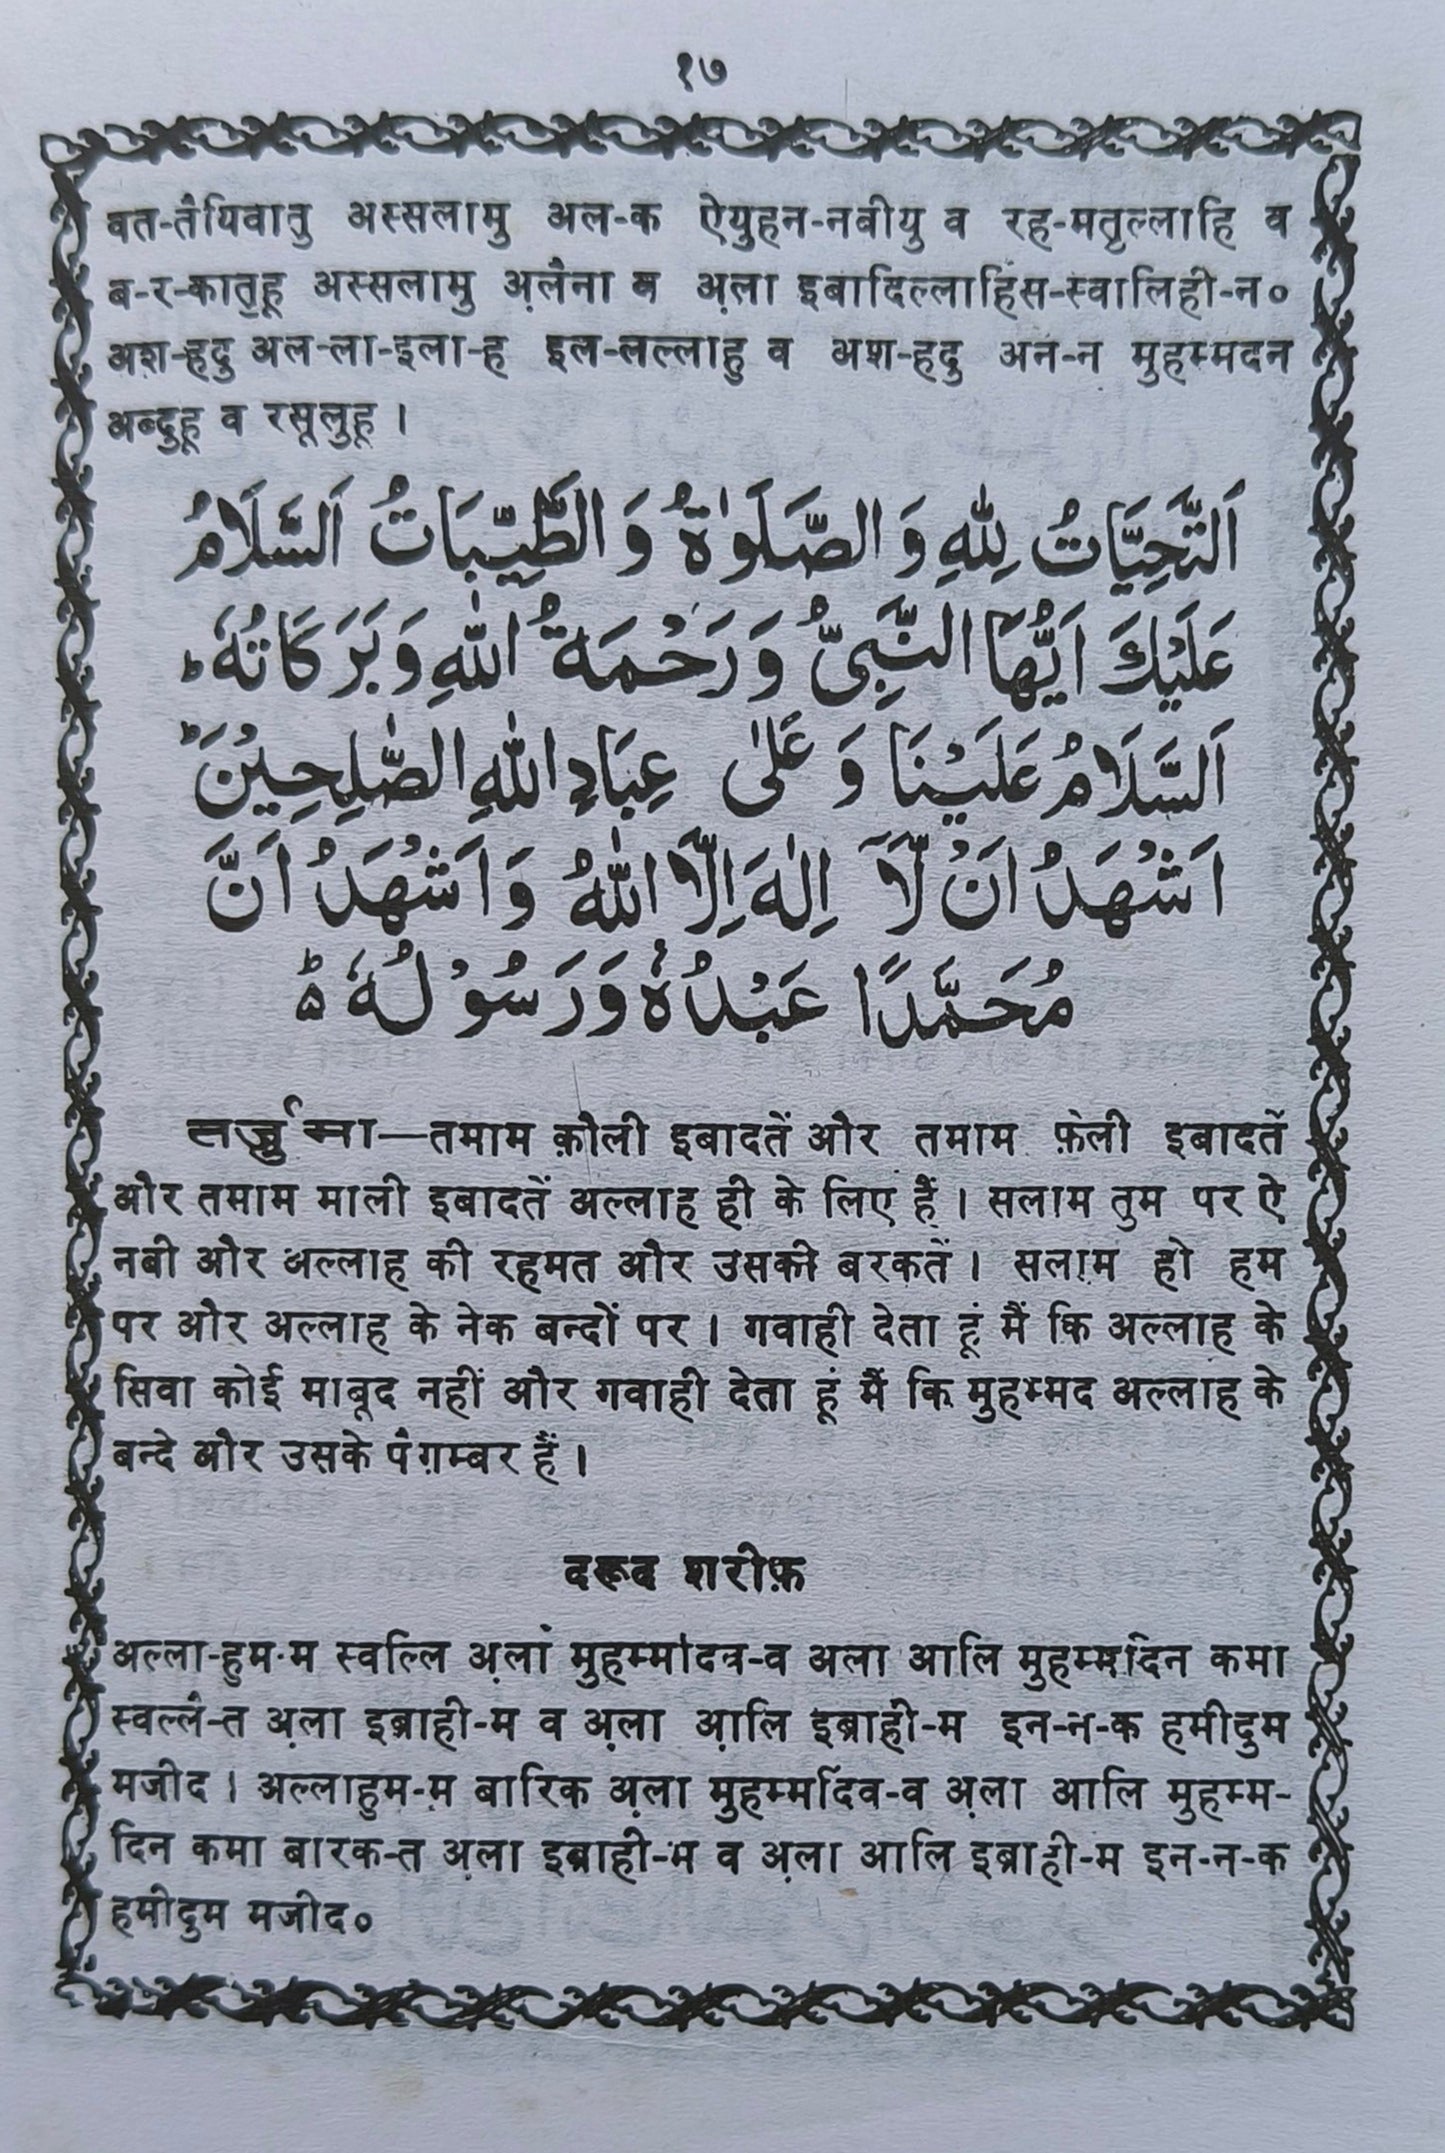 १७
वत-तैयिवातु अस्सलामु अल-क ऐयुहन-नबीयु व रह-मतुल्लाहि व
ब-र-कातुहू अस्सलामु अ़लैना व अ़ला इबादिल्लाहिस-स्वालिही-न०
अश-हदु अल-ला-इला-ह इल-लल्लाहु व अश-हदु अन-न मुहम्मदन
अब्दुहू व रसूलुहू ।
اَلتَّحِيَّاتُ لِلّٰهِ وَ الصَّلَوٰةُ وَ الطَّيِّبَاتُ اَلسَّلَامُ
عَلَيْكَ اَيُّهَا النَّبِىُّ وَ رَحْمَةُ اللّٰهِ وَ بَرَكَاتُهٗ ؕ
اَلسَّلَامُ عَلَيْنَا وَ عَلٰى عِبَادِ اللّٰهِ الصّٰلِحِيْنَ ؕ
اَشْهَدُ اَنْ لَّآ اِلٰهَ اِلَّا اللّٰهُ وَ اَشْهَدُ اَنَّ
مُحَمَّدًا عَبْدُهٗ وَ رَسُوْلُهٗ ؕ
तर्जुमा—तमाम क़ौली इबादतें और तमाम फ़ेली इबादतें
और तमाम माली इबादतें अल्लाह ही के लिए हैं । सलाम तुम पर ऐ
नबी और अल्लाह की रहमत और उसकी बरकतें । सलाम हो हम
पर और अल्लाह के नेक बन्दों पर । गवाही देता हूं मैं कि अल्लाह के
सिवा कोई माबूद नहीं और गवाही देता हूं मैं कि मुहम्मद अल्लाह के
बन्दे और उसके पैग़म्बर हैं ।
दरूद शरीफ़
अल्ला-हुम-म स्वल्लि अ़ला मुहम्मदिव-व अला आलि मुहम्मदिन कमा
स्वल्लै-त अ़ला इब्राही-म व अ़ला आ़लि इब्राही-म इन-न-क हमीदुम
मजीद । अल्लाहुम-म बारिक अ़ला मुहम्मदिव-व अ़ला आलि मुहम्म-
दिन कमा बारक-त अ़ला इब्राही-म व अ़ला आलि इब्राही-म इन-न-क
हमीदुम मजीद०